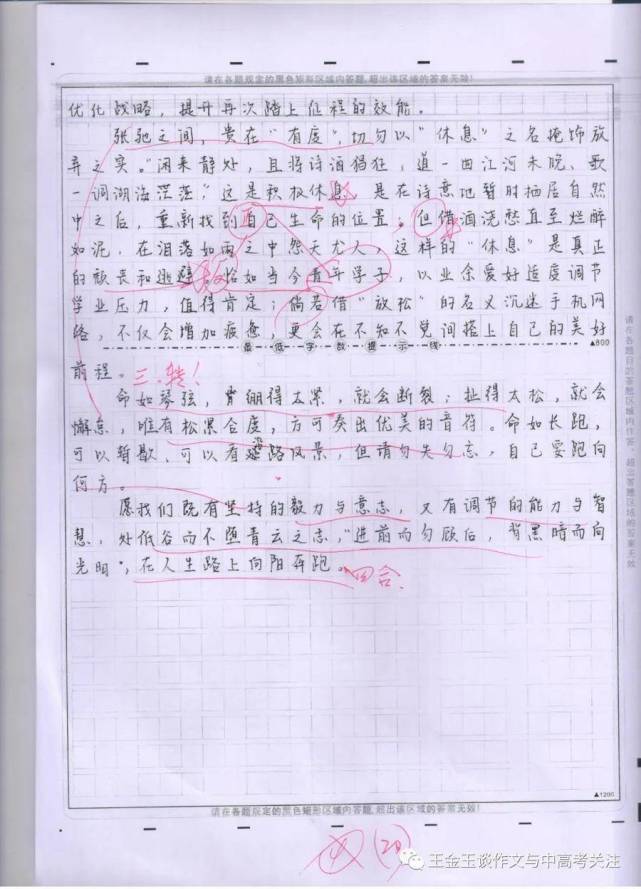 请在各题规定的黑色矩形区域内答题,超出该区域的答案无效!
优化战略，提升再次踏上征程的效能。
张驰之间，贵在“有度”，切勿以“休息”之名掩饰放
弃之实。“闲来静处，且将诗酒猖狂，道一曲江河未晚、歌
一调湖海茫茫，”这是积极休息，是在诗意地暂时栖居自然
中之后，重新找到自己生命的位置；但借酒浇愁直至烂醉
如泥，在泪落如雨之中怨天尤人，这样的“休息”是真正
的颓丧和逃避。恰如当今青年学子，以业余爱好适度调节
学业压力，值得肯定；倘若借“放松”的名义沉迷手机网
络，不仅会增加疲惫，更会在不知不觉间搭上自己的美好
最低字数提示线 ▲800
前程。
三.转!
命如琴弦，绷得太紧，就会断裂；扯得太松，就会
懈怠，唯有松紧合度，方可奏出优美的音符。命如长跑，
可以暂歇、可以看路风景，但请勿失勿忘，自己要跑向
何方。
愿我们既有坚持的毅力与意志，又有调节的能力与智
慧，处低谷而不堕青云之志，“进前而勿顾后，背黑暗而向
光明”，在人生路上向阳奔跑。
四合.
▲1200
请在各题规定的黑色矩形区域内答题,超出该区域的答案无效!
请在各题目的答题区域内作答，超出答题区域的答案无效
王金玉谈作文与中高考关注